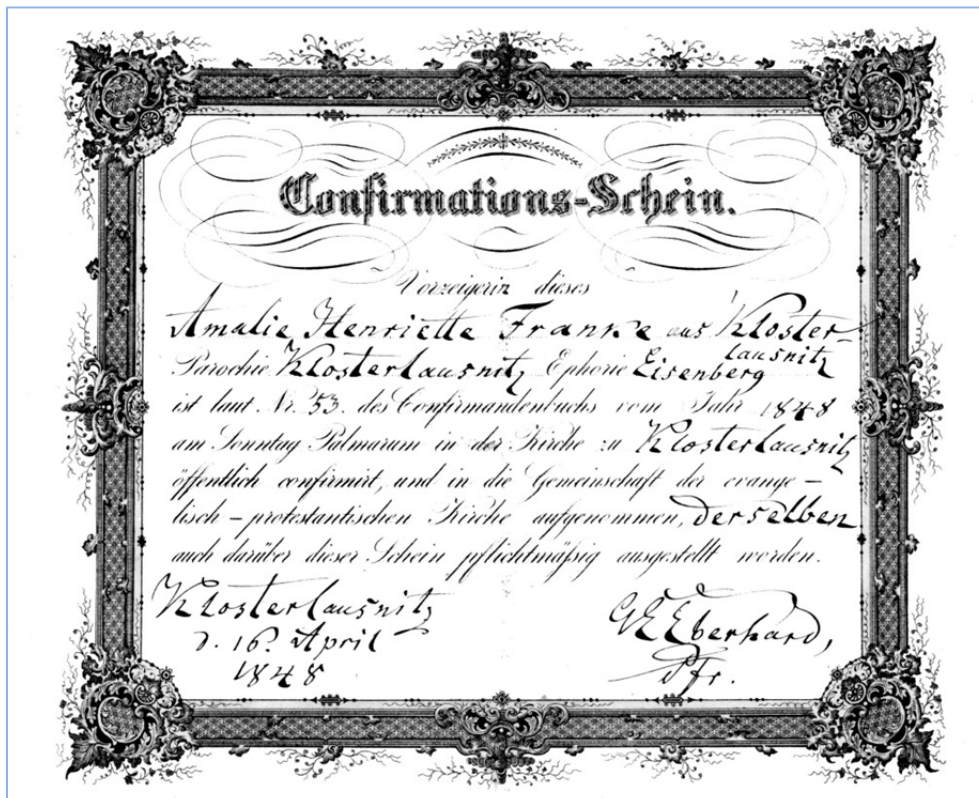 Confirmations-Schein.
Vorzeigerin dieses
Amalie Henriette Franke aus Kloster-
lausnitz
Parochie Klosterlausnitz Ephorie Eisenberg
ist laut Nr. 53. des Confirmandenbuchs vom Jahr 1848
am Sonntag Palmarum in der Kirche zu Klosterlausnitz
öffentlich confirmirt, und in die Gemeinschaft der evange-
lisch-protestantischen Kirche aufgenommen, derselben
auch darüber dieser Schein pflichtmäßig ausgestellt worden.
Klosterlausnitz
d. 16. April
1848
G E Eberhard,
Pfr.